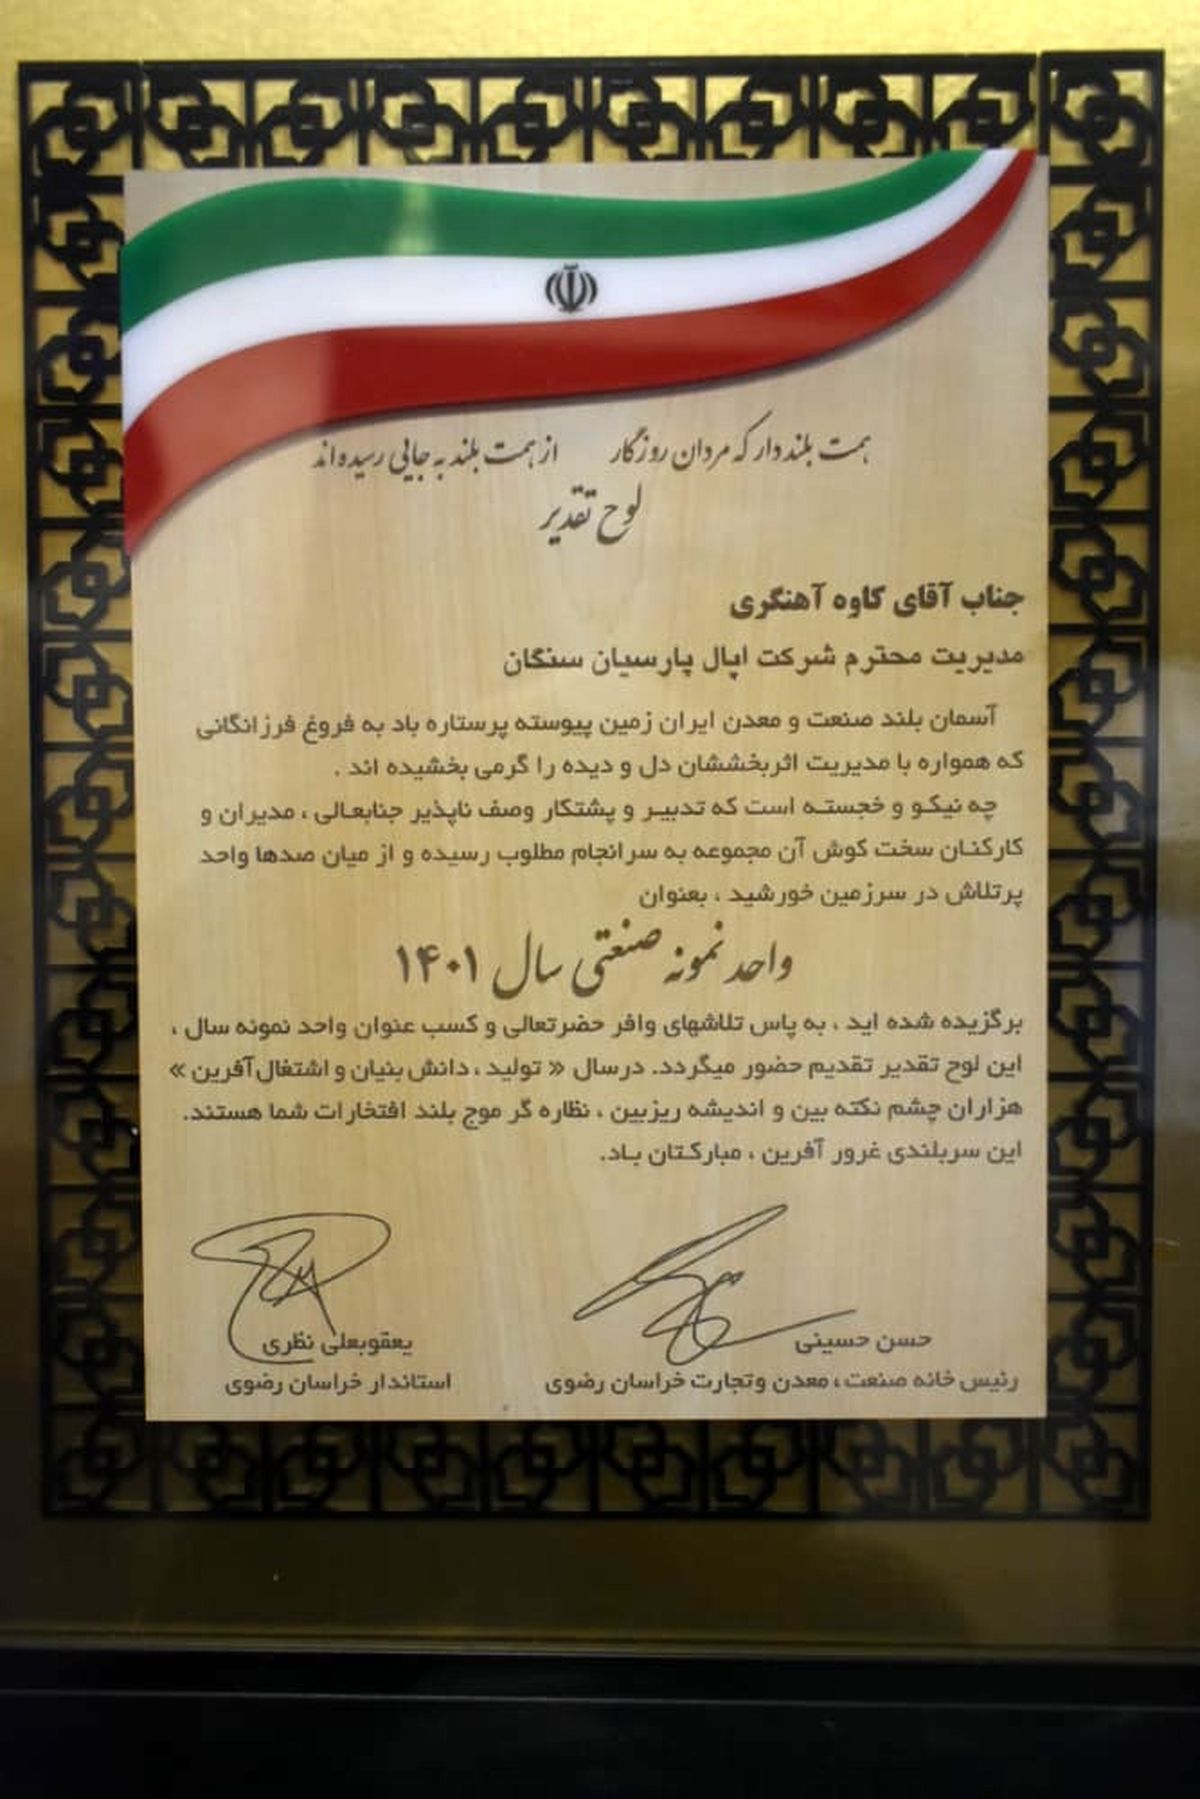 همت بلند دار که مردان روزگار از همت بلند به جایی رسیده‌اند
لوح تقدیر
جناب آقای کاوه آهنگری
مدیریت محترم شرکت اپال پارسیان سنگان
آسمان بلند صنعت و معدن ایران زمین پیوسته پرستاره باد به فروغ فرزانگانی
که همواره با مدیریت اثربخششان دل و دیده را گرمی بخشیده اند .
چه نیکو و خجسته است که تدبیر و پشتکار وصف ناپذیر جنابعالی ، مدیران و
کارکنان سخت کوش آن مجموعه به سرانجام مطلوب رسیده و از میان صدها واحد
پرتلاش در سرزمین خورشید ، بعنوان
واحد نمونه صنعتی سال ۱۴۰۱
برگزیده شده اید ، به پاس تلاشهای وافر حضرتعالی و کسب عنوان واحد نمونه سال ،
این لوح تقدیر تقدیم حضور میگردد. درسال « تولید ، دانش بنیان و اشتغال آفرین »
هزاران چشم نکته بین و اندیشه ریزبین ، نظاره گر موج بلند افتخارات شما هستند.
این سربلندی غرور آفرین ، مبارکتان باد.
حسن حسینی
رئیس خانه صنعت، معدن وتجارت خراسان رضوی
یعقوبعلی نظری
استاندار خراسان رضوی